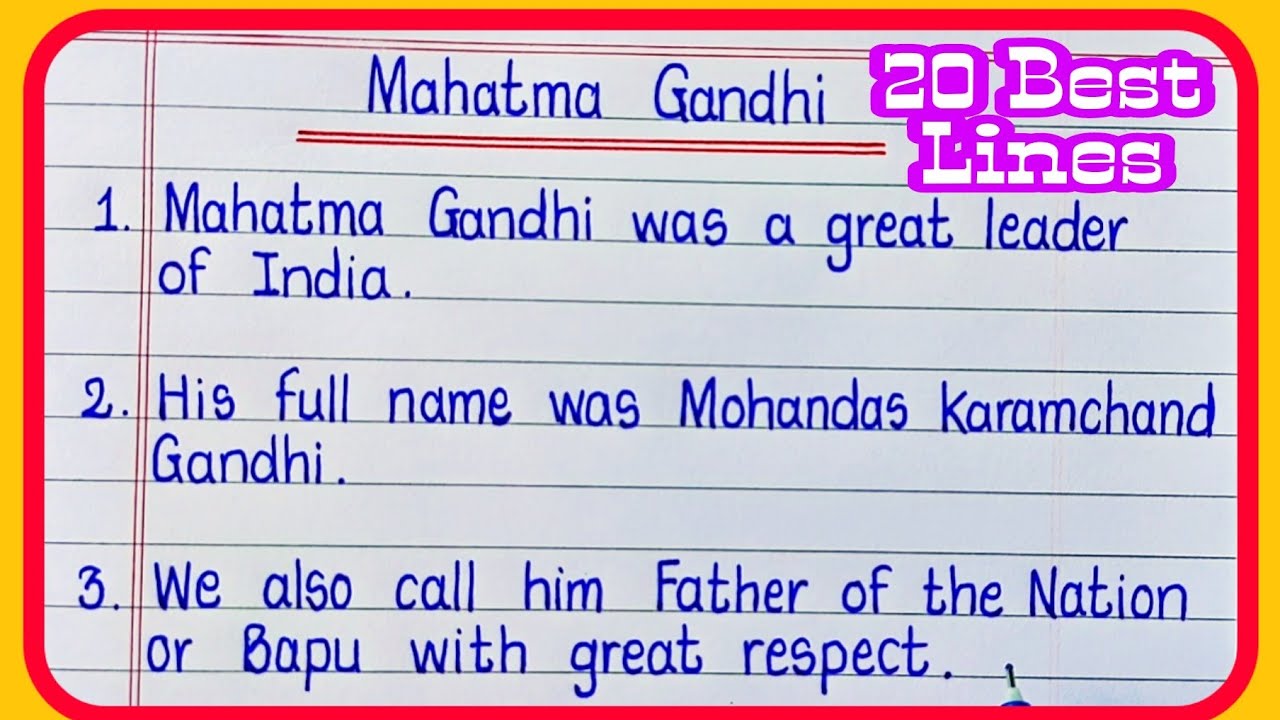 Mahatma Gandhi
20 Best
Lines
1. Mahatma Gandhi was a great leader
of India.
2. His full name was Mohandas Karamchand
Gandhi.
3. We also call him Father of the Nation
or Bapu with great respect.